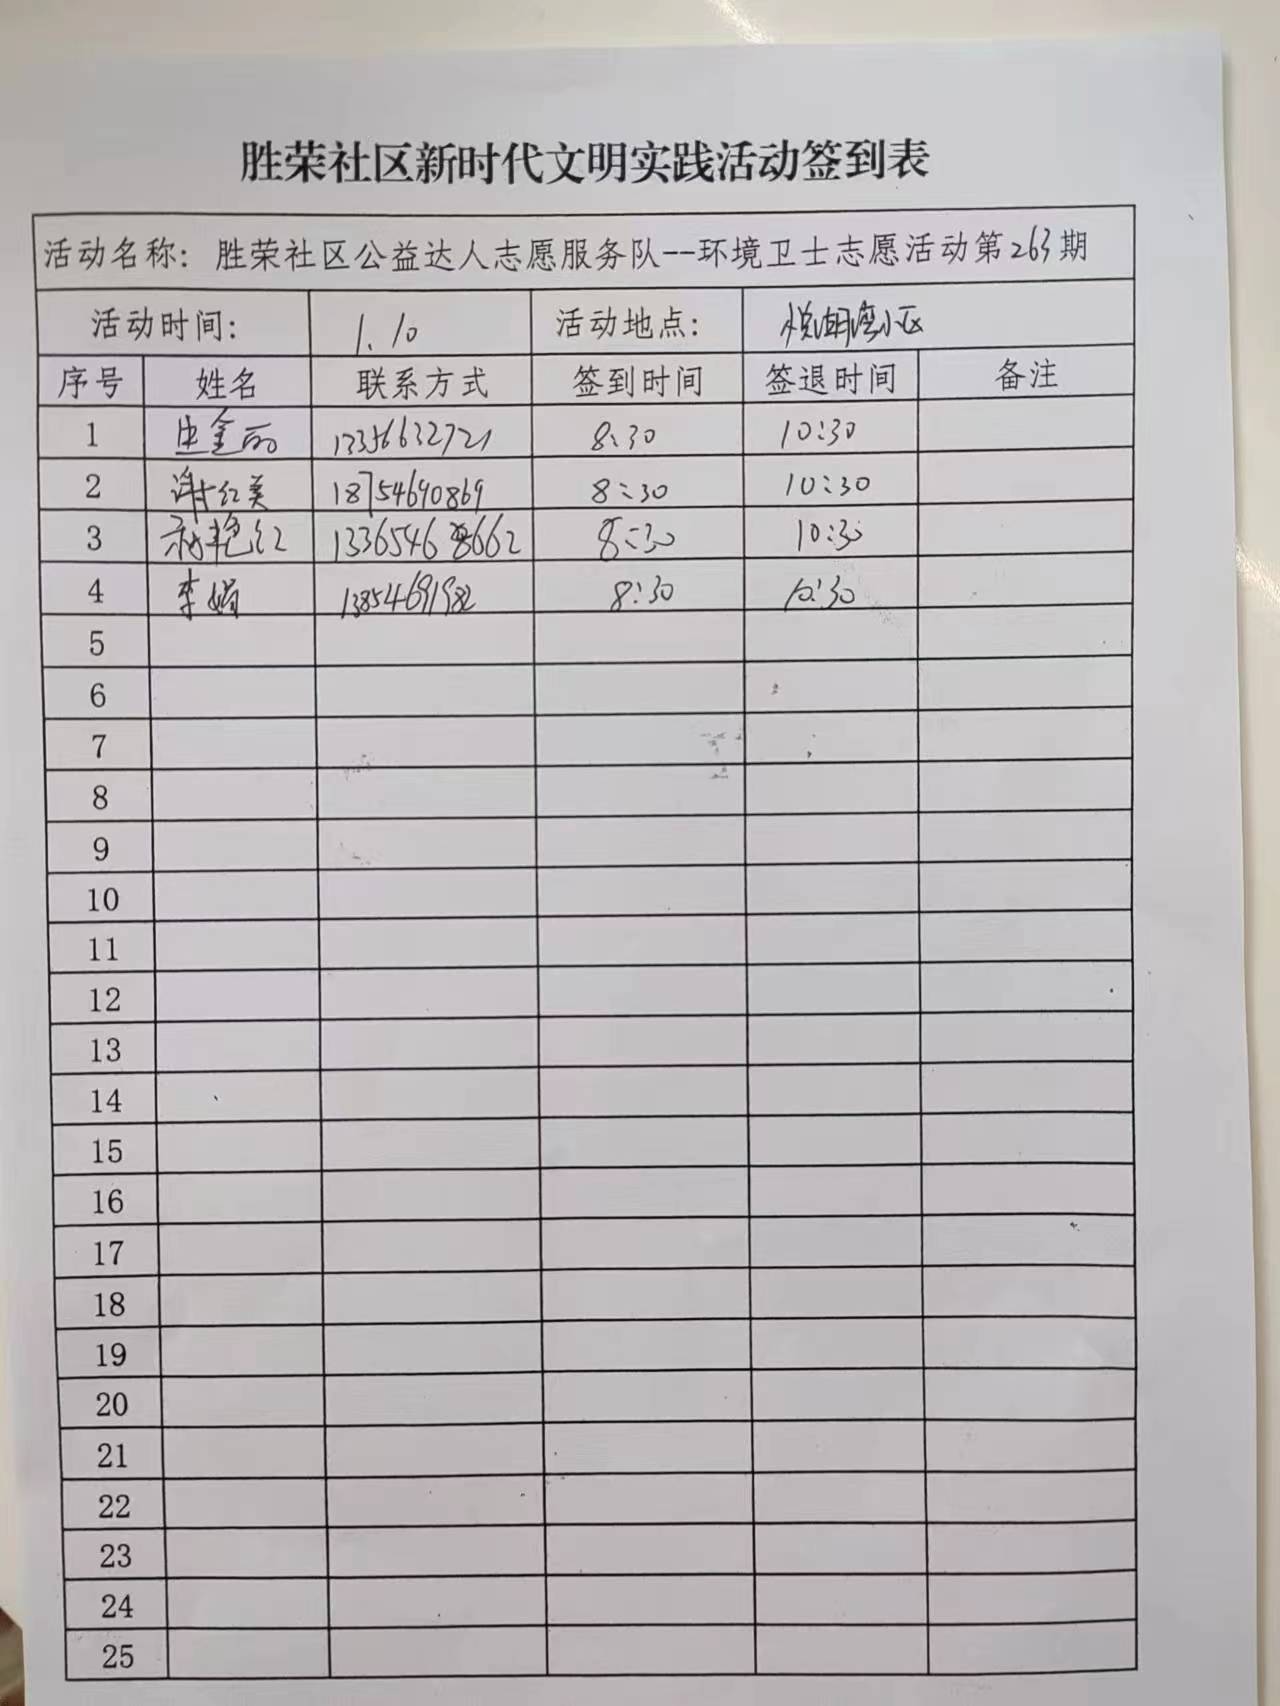 胜荣社区新时代文明实践活动签到表
活动名称：胜荣社区公益达人志愿服务队--环境卫士志愿活动第263期
活动时间： 1.10 活动地点： 悦湖湾小区
序号 姓名 联系方式 签到时间 签退时间 备注
1 金丽 13356632721 8:30 10:30
2 谢红美 18754690869 8:30 10:30
3 艳红 13365468662 8:30 10:30
4 李娟 13854691982 8:30 10:30
5
6
7
8
9
10
11
12
13
14
15
16
17
18
19
20
21
22
23
24
25